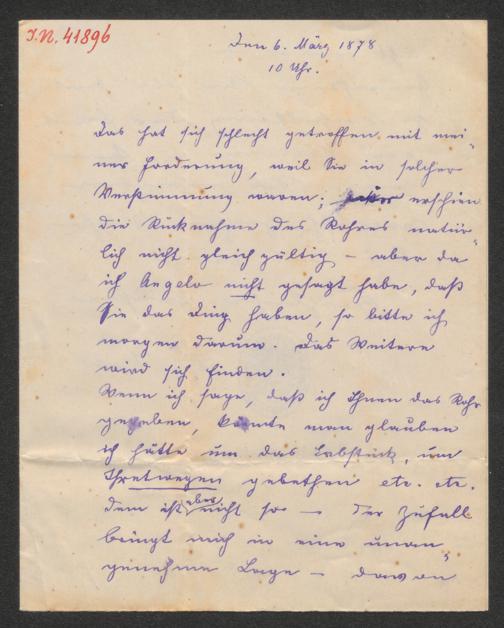 I.N. 41896
Den 6. März 1878
10 Uhr.
Das hat sich schlecht getroffen mit mei-
ner Forderung, weil Sie in solcher
Verstimmung waren; erschien
die Rücknahme des Rohres natür-
lich nicht gleichgültig – aber da
ich Angelo nicht gesagt habe, daß
Sie das Ding haben, so bitte ich
morgen darum. Das Weitere
wird sich finden.
Wenn ich sage, daß ich Ihnen das Rohr
gegeben, könnte man glauben
ich hätte um das Labstück, um
Ihretwegen gebethen etc. etc.
dem ist aber nicht so – Der Zufall
bringt mich in eine unan-
genehme Lage – davon